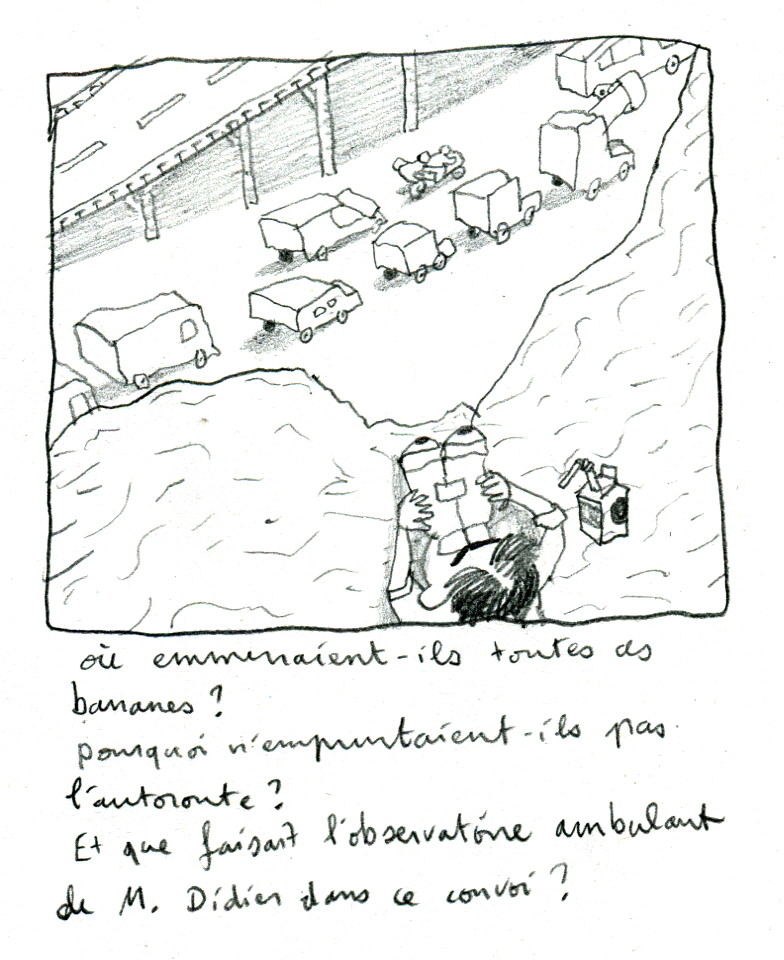 où emmenaient-ils toutes ces
bananes ?
pourquoi n'empruntaient-ils pas
l'autoroute ?
Et que faisait l'observatoire ambulant
de M. Didier dans ce convoi ?